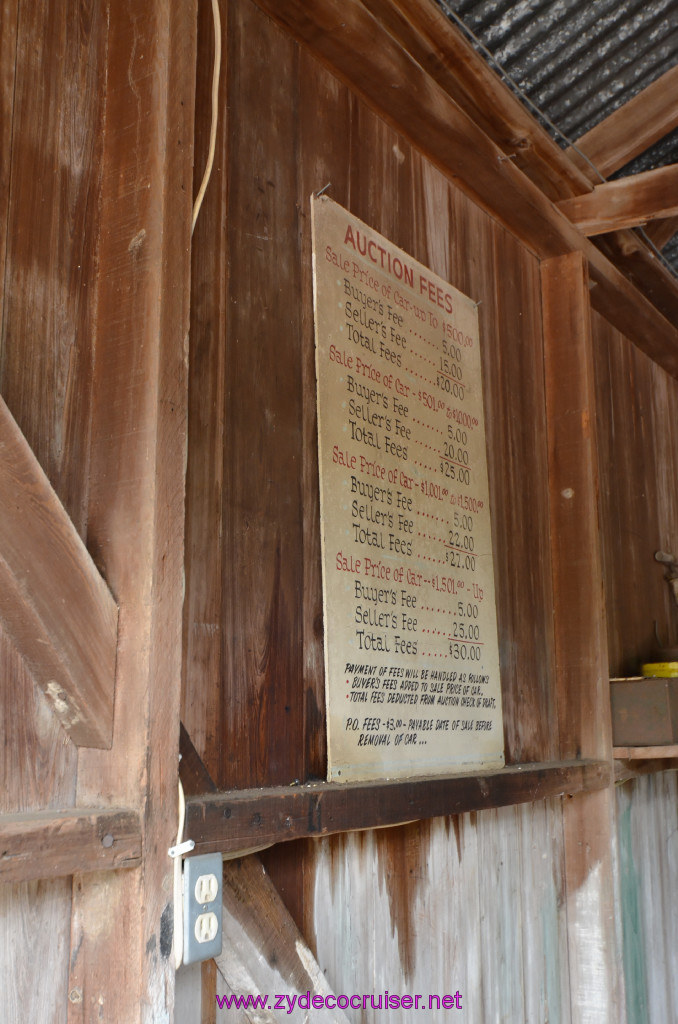 AUCTION FEES
Sale Price of Car-up To $500.00
Buyer's Fee ....... 5.00
Seller's Fee ..... 15.00
Total Fees ...... $20.00
Sale Price of Car - $501.00 to $1000.00
Buyer's Fee ....... 5.00
Seller's Fee ..... 20.00
Total Fees ..... $25.00
Sale Price of Car - $1,001.00 to $1,500.00
Buyer's Fee ....... 5.00
Seller's Fee ..... 22.00
Total Fees ...... $27.00
Sale Price of Car -- $1,501.00 - Up
Buyer's Fee ....... 5.00
Seller's Fee ..... 25.00
Total Fees ..... $30.00
PAYMENT OF FEES WILL BE HANDLED AS FOLLOWS
• BUYER'S FEES ADDED TO SALE PRICE OF CAR..
• TOTAL FEES DEDUCTED FROM AUCTION CHECK OF DRAFT.
P.O. FEES - $3.00 - PAYABLE DATE OF SALE BEFORE
REMOVAL OF CAR ...
www.zydecocruiser.net